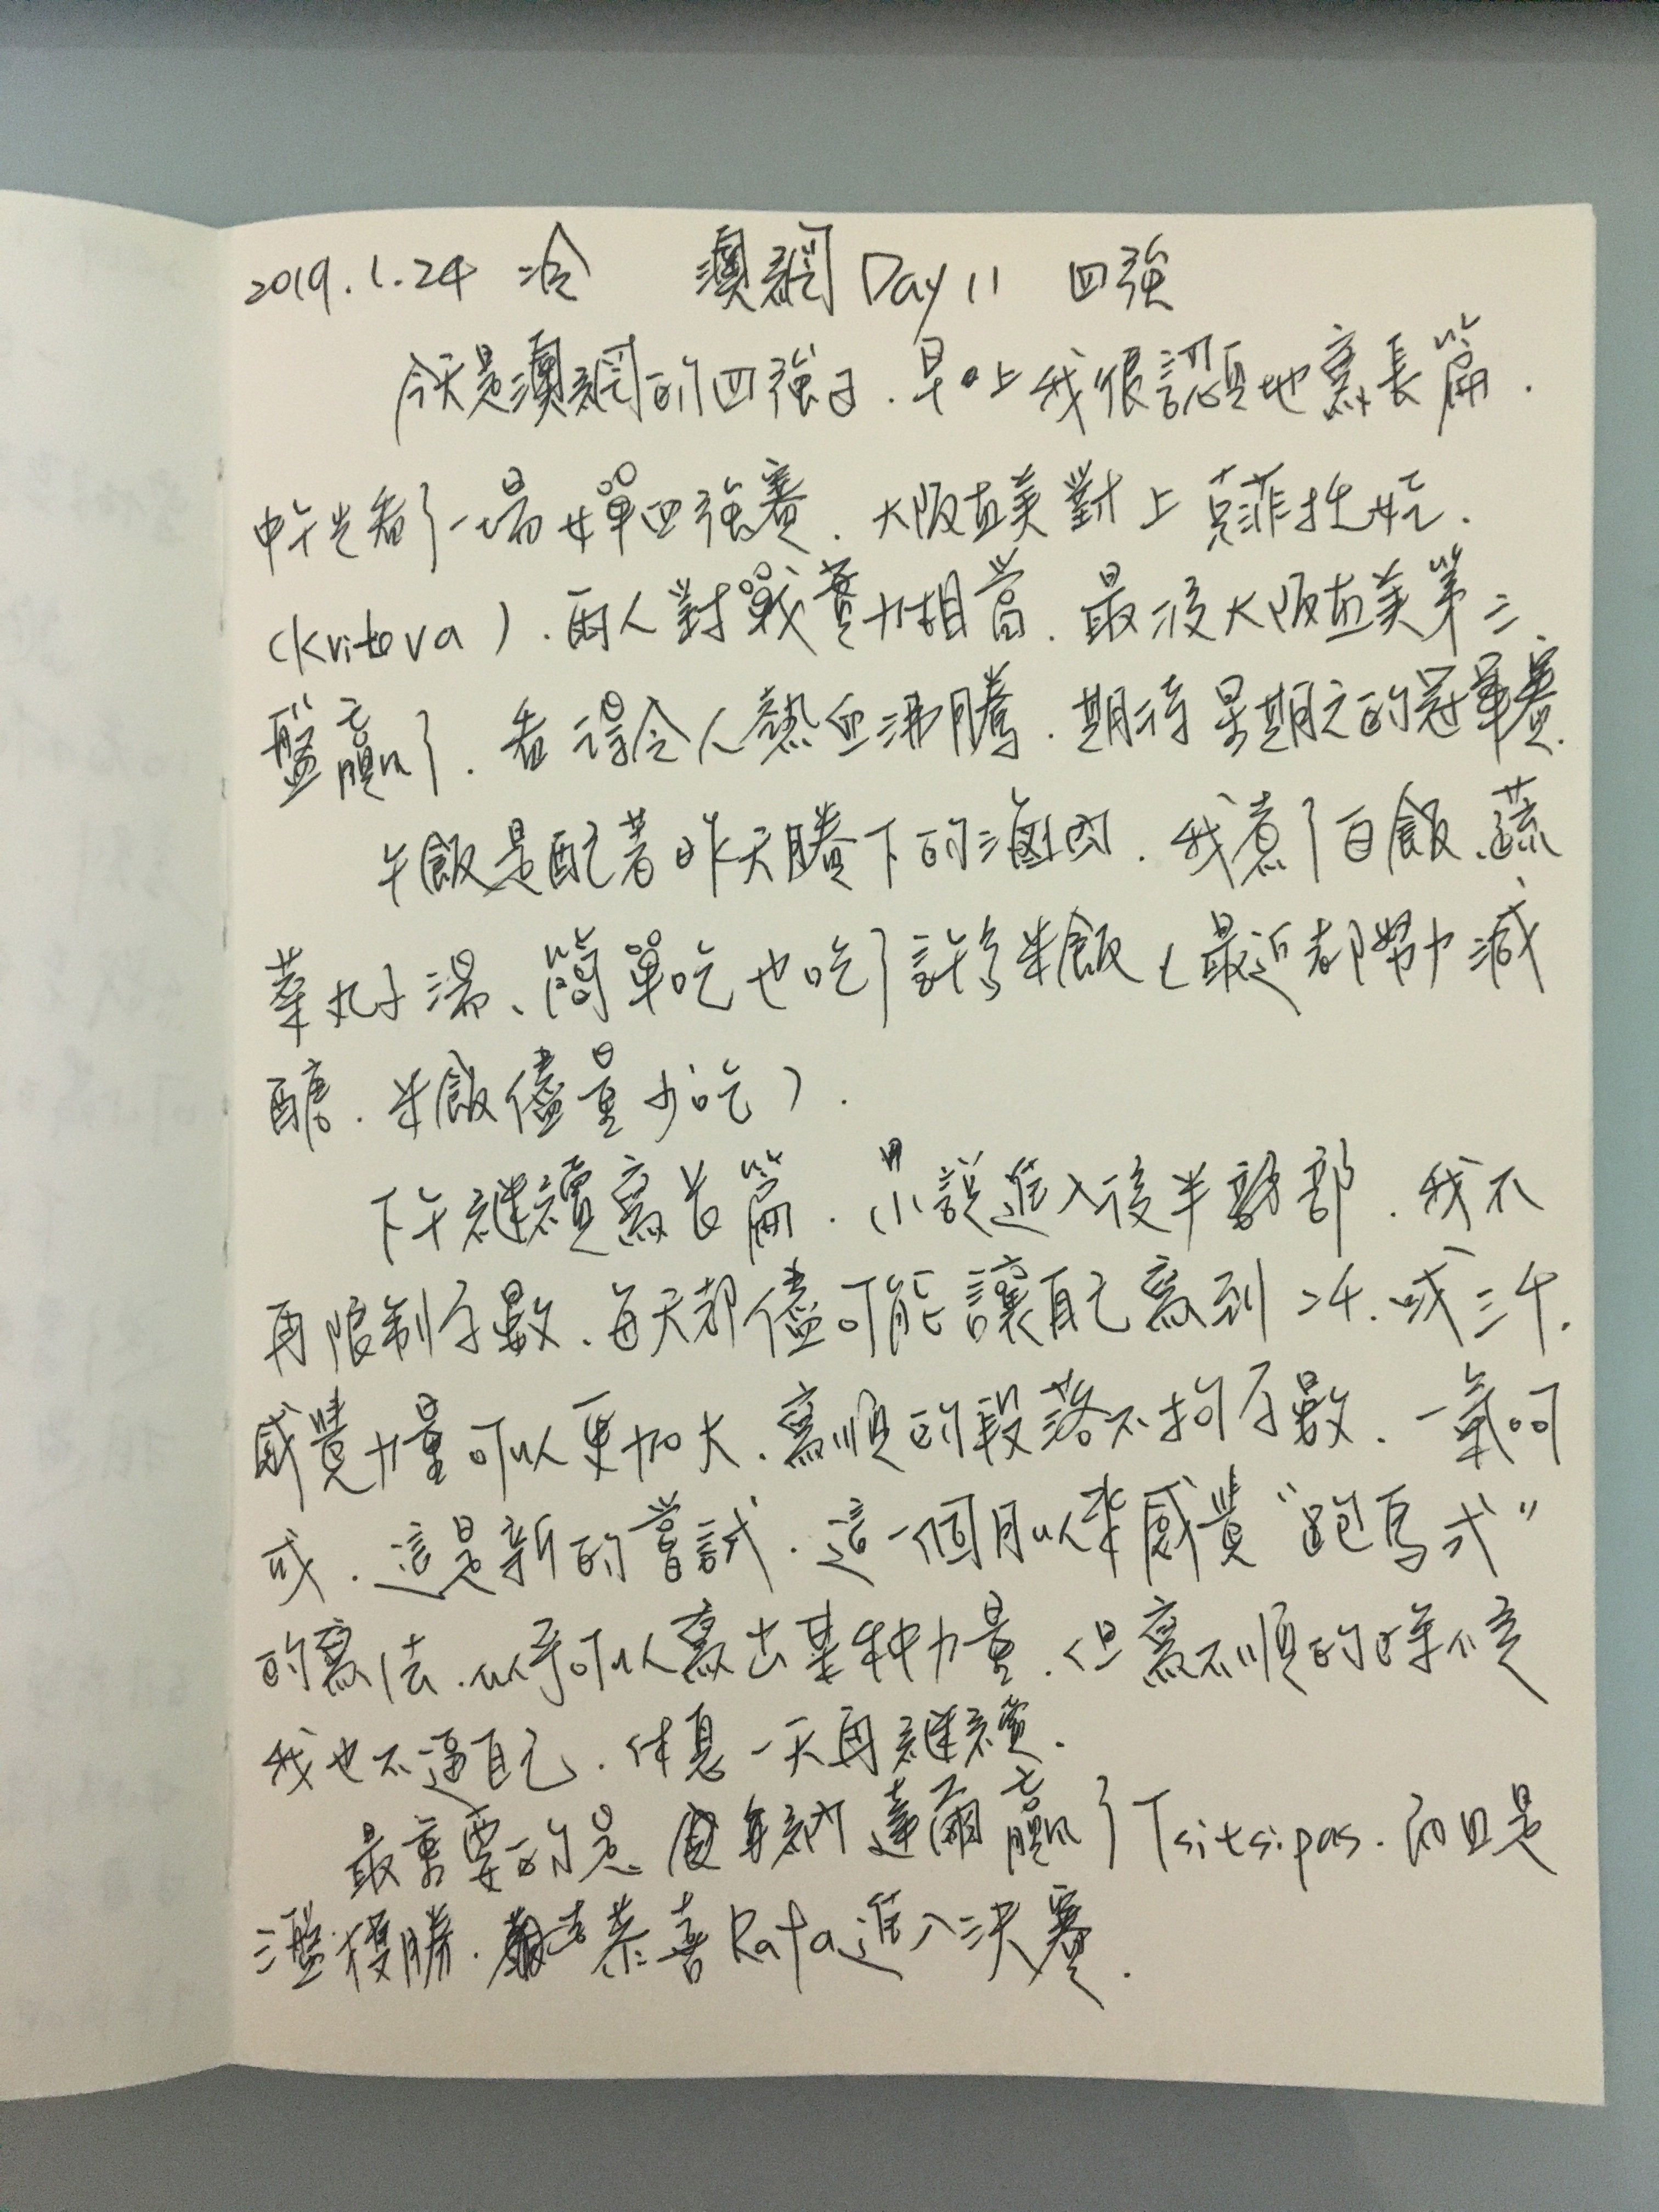 2019.1.24 冷 澳網 Day 11 四強
今天是澳網的四強日．早上我很認真地寫長篇．
中午先看了一場女單四強賽．大阪直美對上克菲托娃．
(Kritova)．兩人對戰實力相當．最後大阪直美第三
盤贏了．看得令人熱血沸騰．期待星期六的冠軍賽．
午飯是配著昨天賸下的滷肉．我煮了白飯、蔬
菜丸子湯、簡單吃也吃了許多米飯（最近都努力減
醣．米飯儘量少吃）．
下午繼續寫長篇．小說進入後半部．我不
再限制字數．每天都儘可能讓自己寫到二千．或三千．
感覺力量可以更加大．寫順的段落不拘字數．一氣呵
成．這是新的嘗試．這一個月以來感覺“跑馬式”
的寫法．似乎可以寫出某种力量．但寫不順的時候
我也不逼自己．休息一天再繼續．
最重要的是 納達爾贏了Tsitsipas．而且是
三盤獲勝．恭喜Rafa進入決賽．